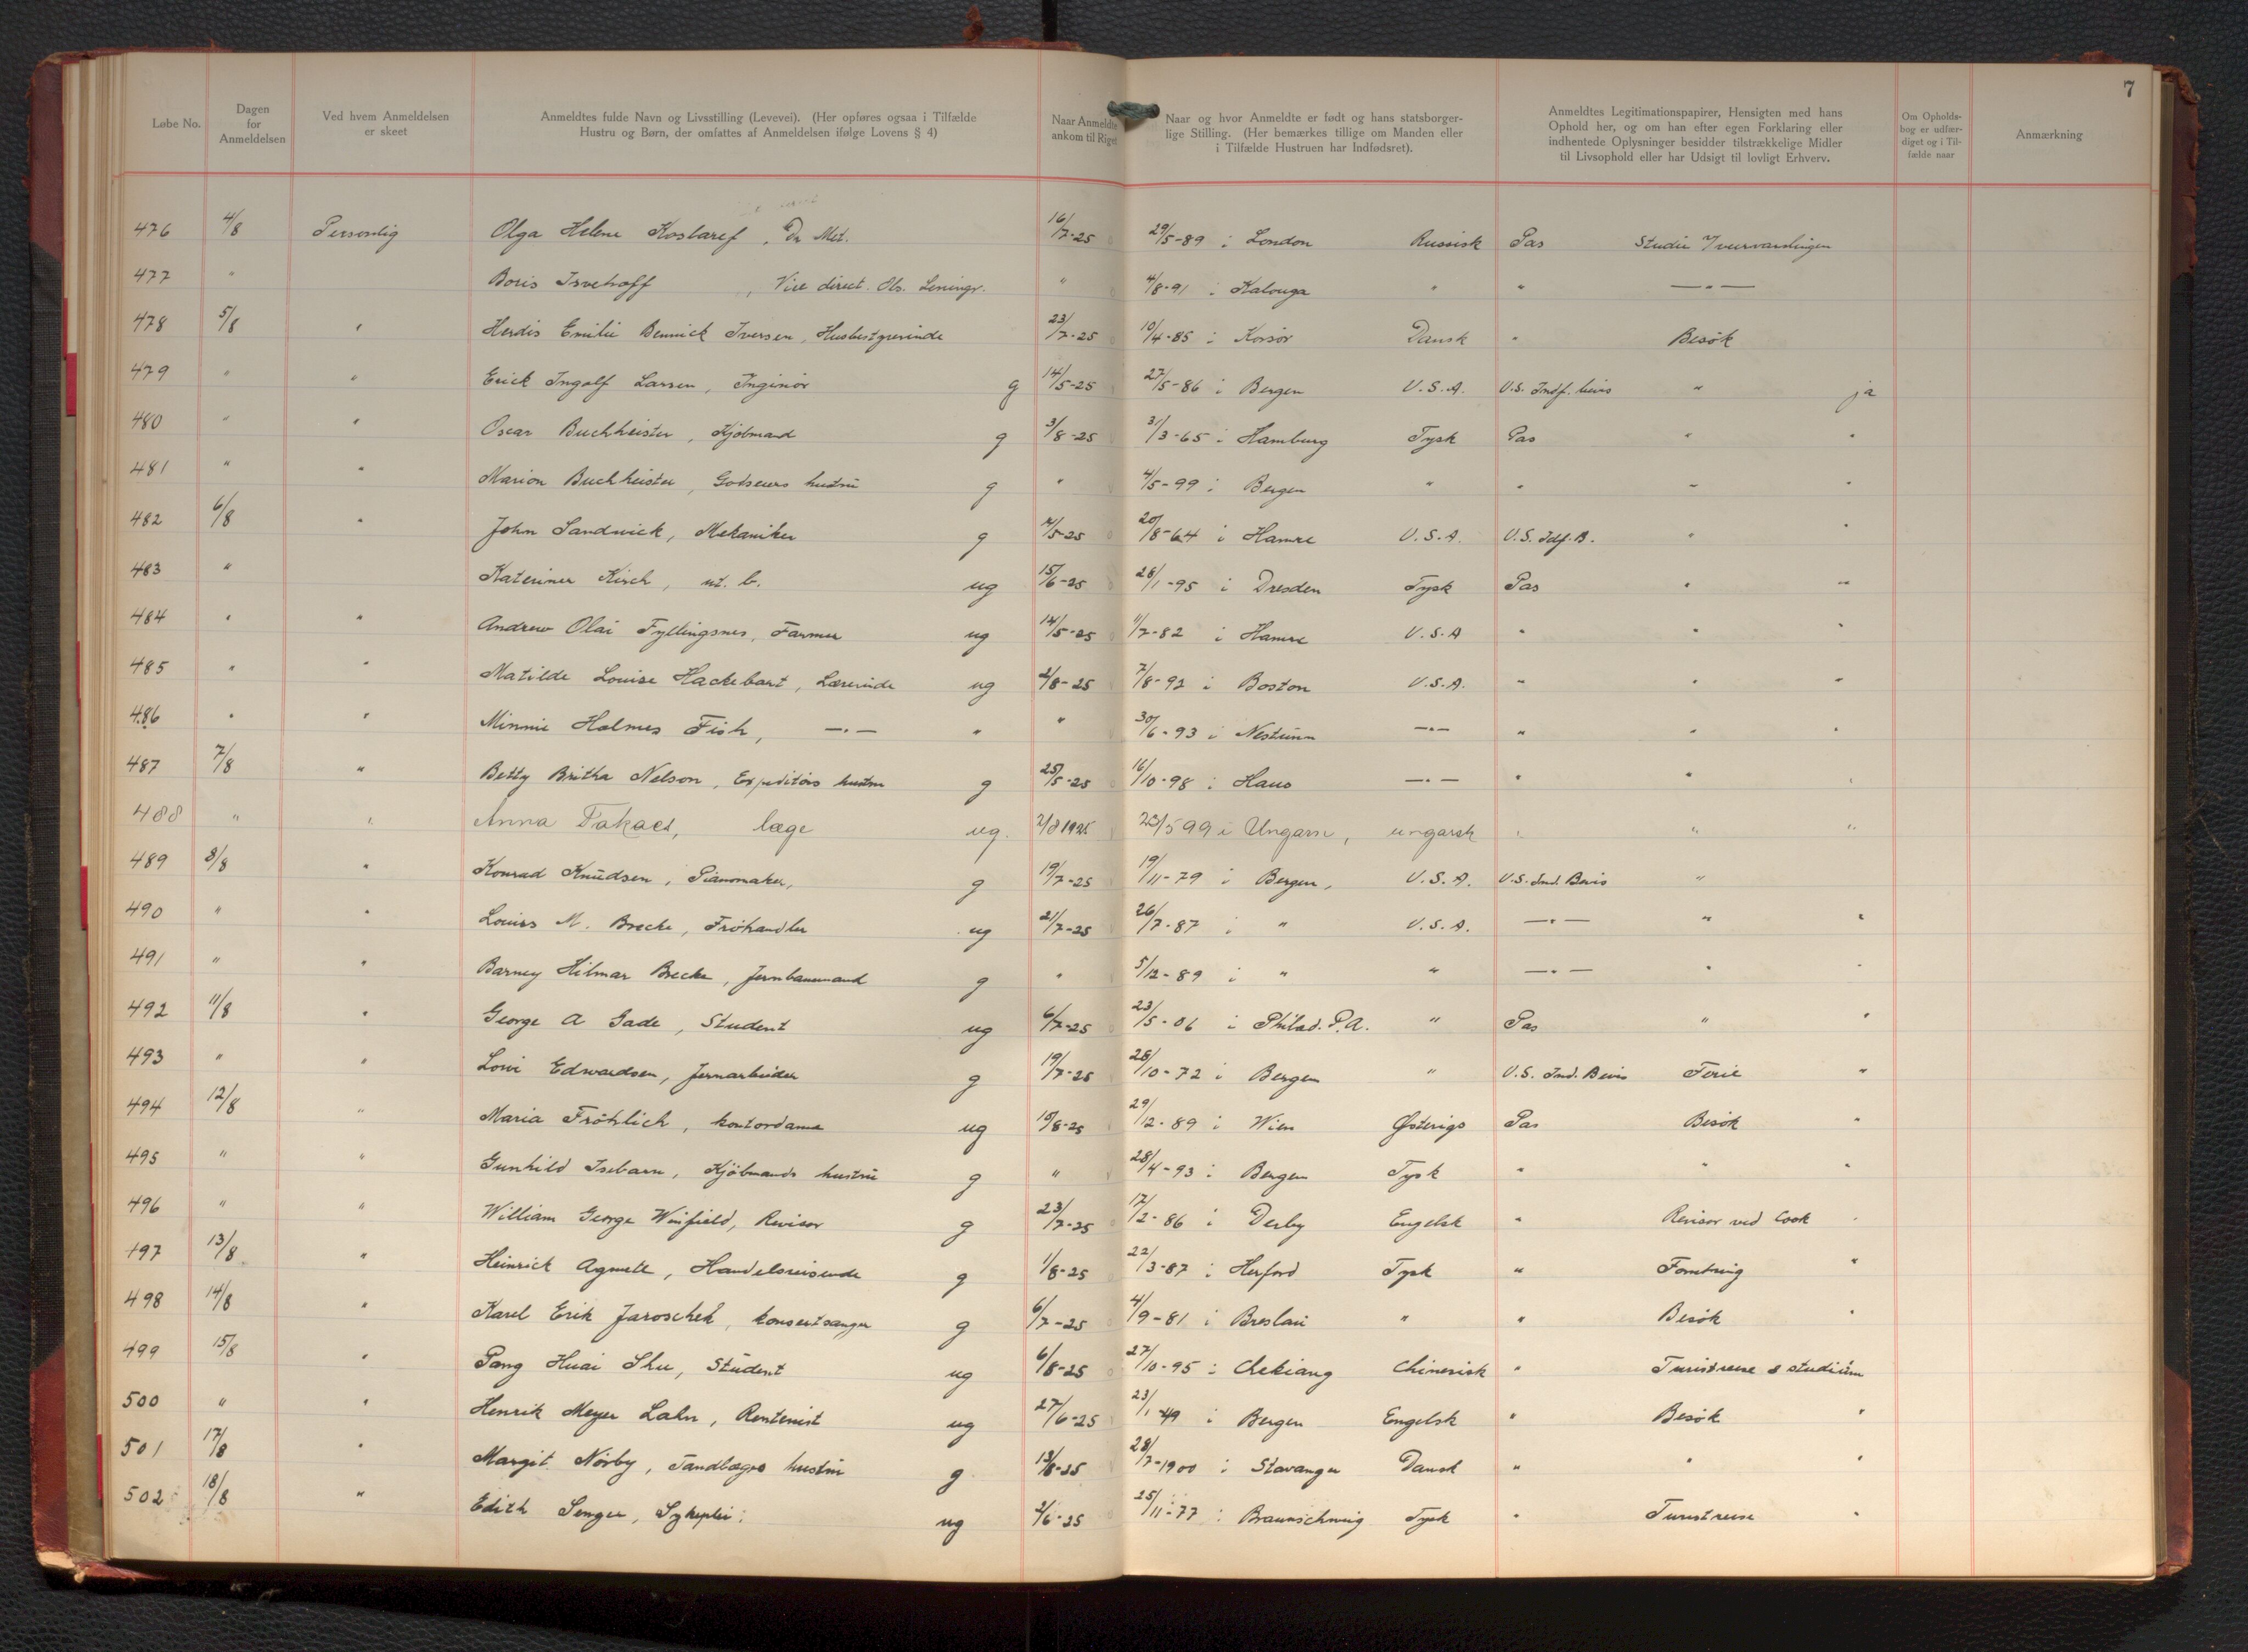 7
Løbe No. | Dagen for Anmeldelsen | Ved hvem Anmeldelsen er skeet | Anmeldtes fulde Navn og Livsstilling (Levevei). (Her opføres ogsaa i Tilfælde Hustru og Børn, der omfattes af Anmeldelsen ifølge Lovens § 4) | Naar Anmeldte ankom til Riget | Naar og hvor Anmeldte er født og hans statsborgerlige Stilling. (Her bemærkes tillige om Manden eller i Tilfælde Hustruen har Indfødsret). | Anmeldtes Legitimationspapirer, Hensigten med hans Ophold her, og om han efter egen Forklaring eller indhentede Oplysninger besidder tilstrækkelige Midler til Livsophold eller har Udsigt til lovligt Erhverv. | Om Opholdsbog er udfærdiget og i Tilfælde naar | Anmærkning
476 4/8 Personlig Olga Helene Kostaref, Dr Met. 16/7-25 29/5-89 i London Russisk Pas Studie Veirvarslingen
477 " Boris Isvekoff, Vice direct. Obs. Leningr. " 4/8-91 i Kalouga " " —"—
478 5/8 " Herdis Emilie Bennick Iversen, Husbestyrerinde 23/7-25 10/4-85 i Korsör Dansk " Besök
479 " " Erick Ingolf Larsen, Inginiör g 14/5-25 27/5-86 i Bergen U.S.A. U.S. Indf. bevis " ja
480 " " Oscar Buchheister, Kjöbmand g 3/8-25 31/3-65 i Hamburg Tysk Pas " "
481 " " Marion Buchheister, Godseiers hustru g " 4/5-99 i Bergen " " " "
482 6/8 " John Sandwick, Mekaniker g 7/5-25 20/8-64 i Hamre U.S.A. U.S. Idf. B. " "
483 " Kateriner Kirch, ut. b. ug 15/6-25 28/1-95 i Dresden Tysk Pas " "
484 " " Andrew Olai Fyllingsnes, Farmer ug 14/5-25 11/7-82 i Hamre U.S.A " " "
485 " " Matilde Louise Hackebart, Lærerinde ug 2/8-25 7/8-92 i Boston U.S.A. " " "
486 " " Minnie Holmes Fish, —"— " " 30/6-93 i Nestunn —"— " " "
487 7/8 " Betty Britha Nelson, Expeditörs hustru g 25/5-25 16/10-98 i Haus —"— " " "
488 " " Anna Takacs, læge ug. 2/8 1925 23/5 99 i Ungarn, ungarsk " " "
489 8/8 " Konrad Knudsen, Pianomaker, g 19/7-25 19/11-79 i Bergen, U.S.A. U.S. Ind. Bevis "
490 " " Louis M. Brecke, Fröhandler ug 21/7-25 26/7-87 i " U.S.A. —"— " "
491 " " Barney Hilmar Brecke, Jernbanemand g " 5/12-89 i " " —"— " "
492 11/8 " George A Gade, Student ug 6/7-25 23/5-06 i Philad. P.A. " Pas " "
493 " " Lowi Edwardsen, Jernarbeider g 19/7-25 28/10-72 i Bergen " U.S. Ind. Bevis Ferie "
494 12/8 " Maria Fröhlich, kontordame ug 10/8-25 29/12-89 i Wien Østerigs Pas Besök "
495 " " Gunhild Isebarn, Kjöbmands hustru g " 28/4-93 i Bergen Tysk " " "
496 " " William George Winfield, Revisor g 23/7-25 17/2-86 i Derby Engelsk " Revisor ved Cook "
497 13/8 " Heinrick Agnett, Handelsreisende g 1/8-25 22/3-87 i Herford Tysk " Forretning "
498 14/8 " Karel Erik Jaroschek, konsertsanger g 6/7-25 4/9-81 i Breslau " " Besök "
499 15/8 " Pang Huai Shu, Student ug 6/8-25 27/10-95 i Chekiang Chinesisk " Turistreise & studium
500 " " Henrik Meyer Lahn, Rentenist ug 27/6-25 23/1 49 i Bergen Engelsk " Besök "
501 17/8 " Margit Nörby, Tandlæges hustru g 13/8-25 28/7-1900 i Stavanger Dansk " " "
502 18/8 " Edith Senger, Sykeplei: ug 2/6-25 25/11-77 i Braunschweig Tysk " Turistreise "